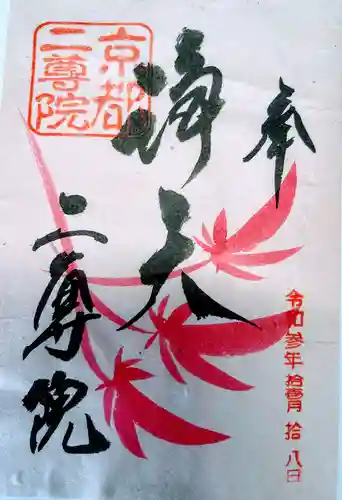 奉
令和参年拾壹月拾八日
浄天
京都
二尊院
二尊院